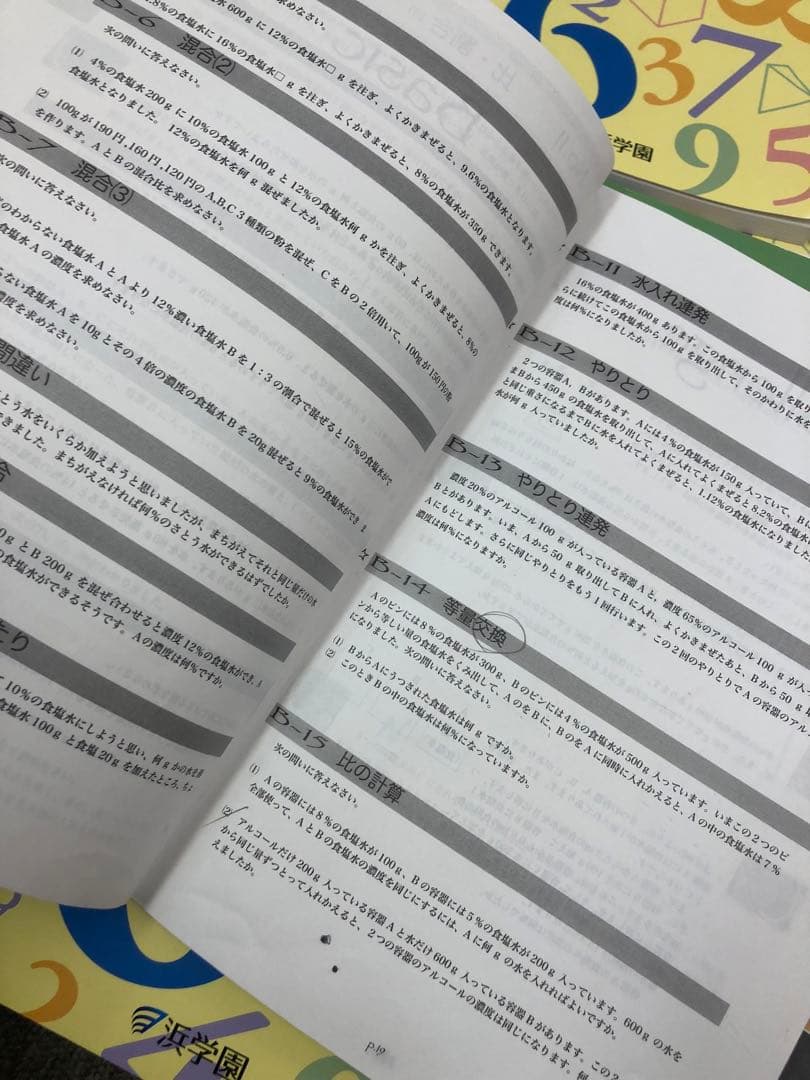 8%の食塩水に16%の食塩水□gを注ぎ、よくかきまぜると、9.6%の食塩水となります。
水600gに12%の食塩水□gを注ぎ、よくかきまぜると、8%の食塩水が350gできます。
求めなさい。
B-6 混合(2)
次の問いに答えなさい。
(1) 4%の食塩水200gに10%の食塩水100gと12%の食塩水何gかを注ぎ、よくかきまぜると、8%の
食塩水となりました。12%の食塩水を何g混ぜましたか。
(2) 100gが190円,160円,120円のA,B,C3種類の粉を混ぜ、CをBの2倍用いて、100gが150円の粉
を作ります。AとBの混合比を求めなさい。
B-7 混合(3)
次の問いに答えなさい。
のわからない食塩水AとAより12%濃い食塩水Bを1:3の割合で混ぜると15%の食塩水がで
食塩水Aの濃度を求めなさい。
らない食塩水Aを10gとその4倍の濃度の食塩水Bを20g混ぜると9%の食塩水ができ
濃度を求めなさい。
間違い
とう水をいくらか加えようと思いましたが、まちがえてそれと同じ量だけの水
できました。まちがえなければ何%のさとう水ができるはずでしたか。
合
0gとB200gを混ぜ合わせると濃度12%の食塩水ができ、A
の食塩水ができるそうです。Aの濃度は何%ですか。
たり
て10%の食塩水にしようと思い、何gかの水を蒸
食塩水100gと食塩20gを加えたところ、ちょ
B-11 水入れ連発
16%の食塩水が400gあります。この食塩水から100gを取り
らに続けてこの食塩水から100gを取り出して、そのかわりに水を
度は何%になりましたか。
B-12 やりとり
2つの容器A、Bがあります。Aには4%の食塩水が150g入っていて、
まBから450gの食塩水を取り出して、Aに入れてよくまぜると8.2%の食塩
と同じ重さになるまでBに水を入れてよくまぜると、1.12%の食塩水になりました
水が何g入っていましたか。
B-13 やりとり連発
濃度20%のアルコール100gが入っている容器Aと、濃度65%のアルコール100gが入っ
Bとがあります。いま、Aから50g取り出してBに入れ、よくかきまぜたあと、Bから50g
Aにもどします。さらに同じやりとりをもう1回行います。この2回のやりとりでAの容器のアルコ
濃度は何%になりますか。
B-14 等量交換
Aのビンには8%の食塩水が300g、Bのビンには4%の食塩水が500g入っています。いまこの2つのビ
ンから等しい量の食塩水をくみ出して、AのをBに、BのをAに同時に入れかえると、Aの中の食塩水は7%
になりました。次の問いに答えなさい。
(1) BからAにうつされた食塩水は何gですか。
(2) このときBの中の食塩水は何%になっていますか。
B-15 比の計算
次の問いに答えなさい。
(1) Aの容器には8%の食塩水が100g、Bの容器には5%の食塩水が200g入っています。600gの水を
全部使って、AとBの食塩水の濃度を同じにするには、Aに何gの水を入れればよいですか。
(2) アルコールだけ200g入っている容器Aと水だけ600g入っている容器Bがあります。この2
から同じ量ずつとって入れかえると、2つの容器のアルコールの濃度は同じになります。何
えましたか。
P.19
浜学園
2
3
7
9
5
浜学園